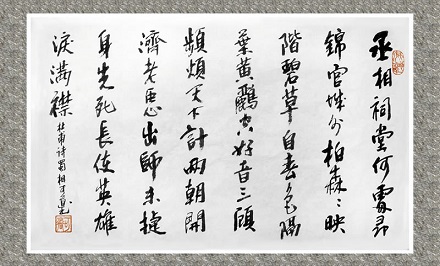 丞相祠堂何處尋
錦官城外柏森〻映
階碧草自春色隔
葉黃鸝空好音三顧
頻煩天下計兩朝開
濟老臣出師未捷
身先死長使英雄
淚滿襟
杜甫詩蜀相